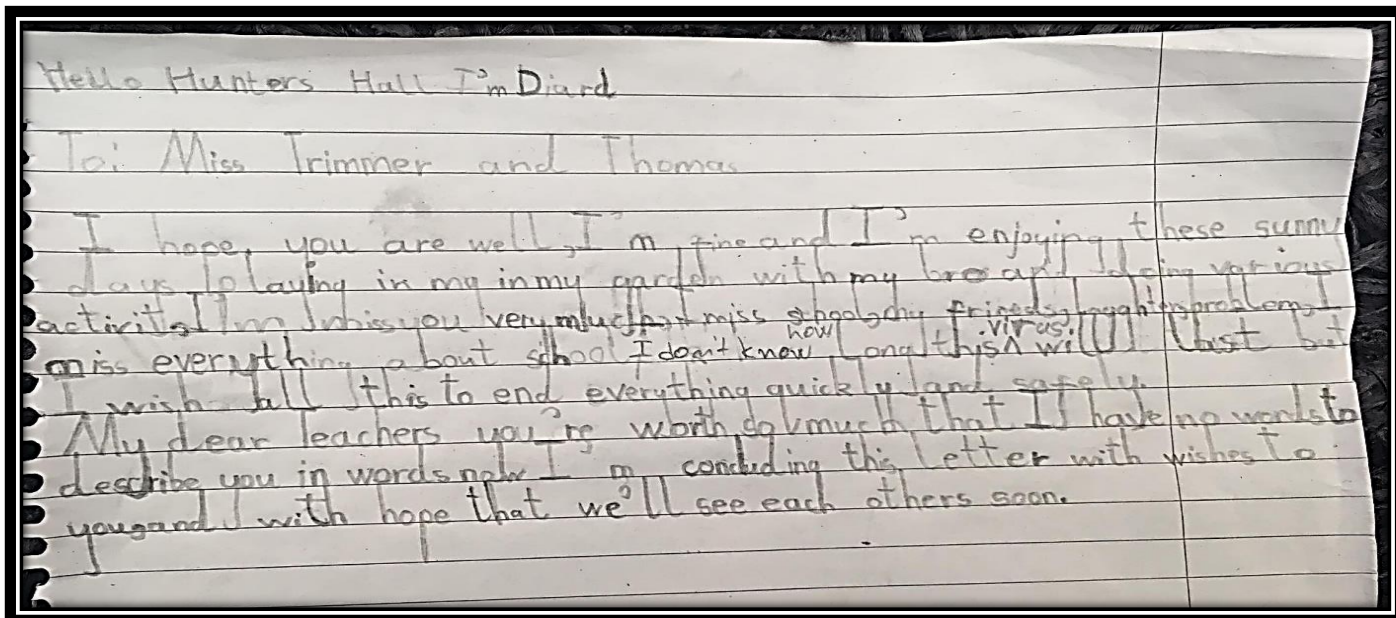 Hello Hunters Hall I'm Diard
To: Miss Trimmer and Thomas
I hope, you are well, I'm fine and I'm enjoying these sunny
days playing in my in my garden with my bro and doing various
I'm miss you very much I miss school, my
miss everything about school I don't know how long this virus will last but
I wish all this to end everything quickly and safely.
My dear teachers you're worth so much that I have no words to
describe you in words now I'm concluding this letter with wishes to
you and with hope that we'll see each others soon.